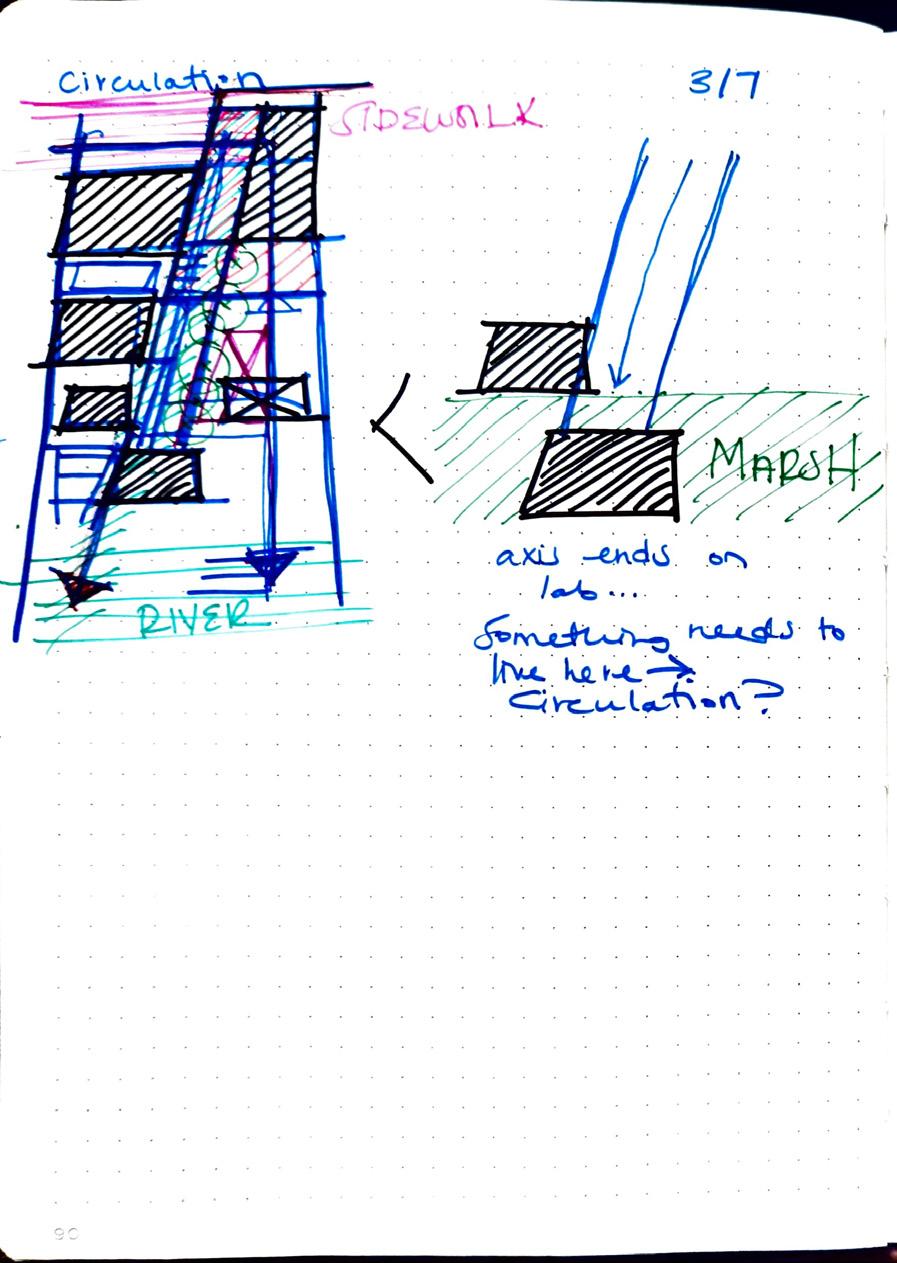 Circulation
3/7
SIDEWALK
MARSH
axis ends on
lab...
Something needs to
live here →
Circulation?
RIVER
90